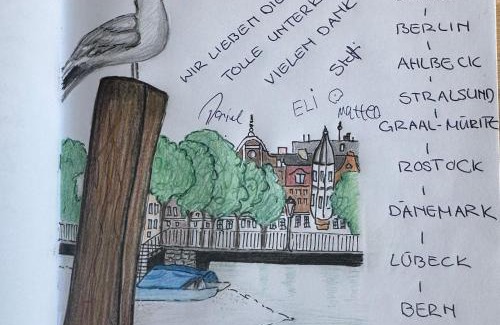 WIR LIEBEN DIE
TOLLE UNTERK
VIELEN DANK
Steffi
Daniel
ELI
matteo
BERLIN
AHLBECK
STRALSUND
GRAAL-MÜRITZ
ROSTOCK
DÄNEMARK
LÜBECK
BERN